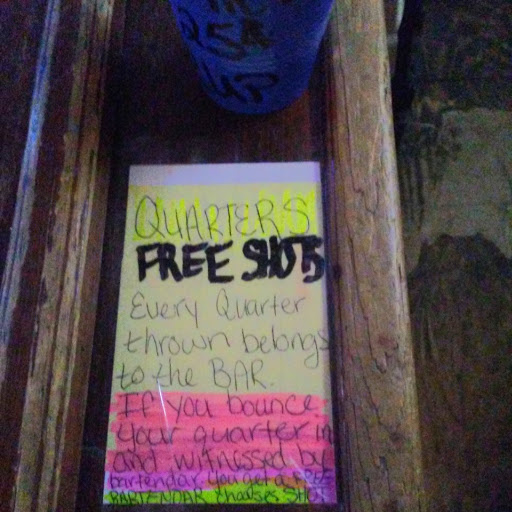 UP
QUARTERS
FREE SHOTS
Every Quarter
thrown belongs
to the BAR.
If you bounce
your quarter in
and witnessed by
bartendar you get a FREE
BARTENDAR chooses SHOT